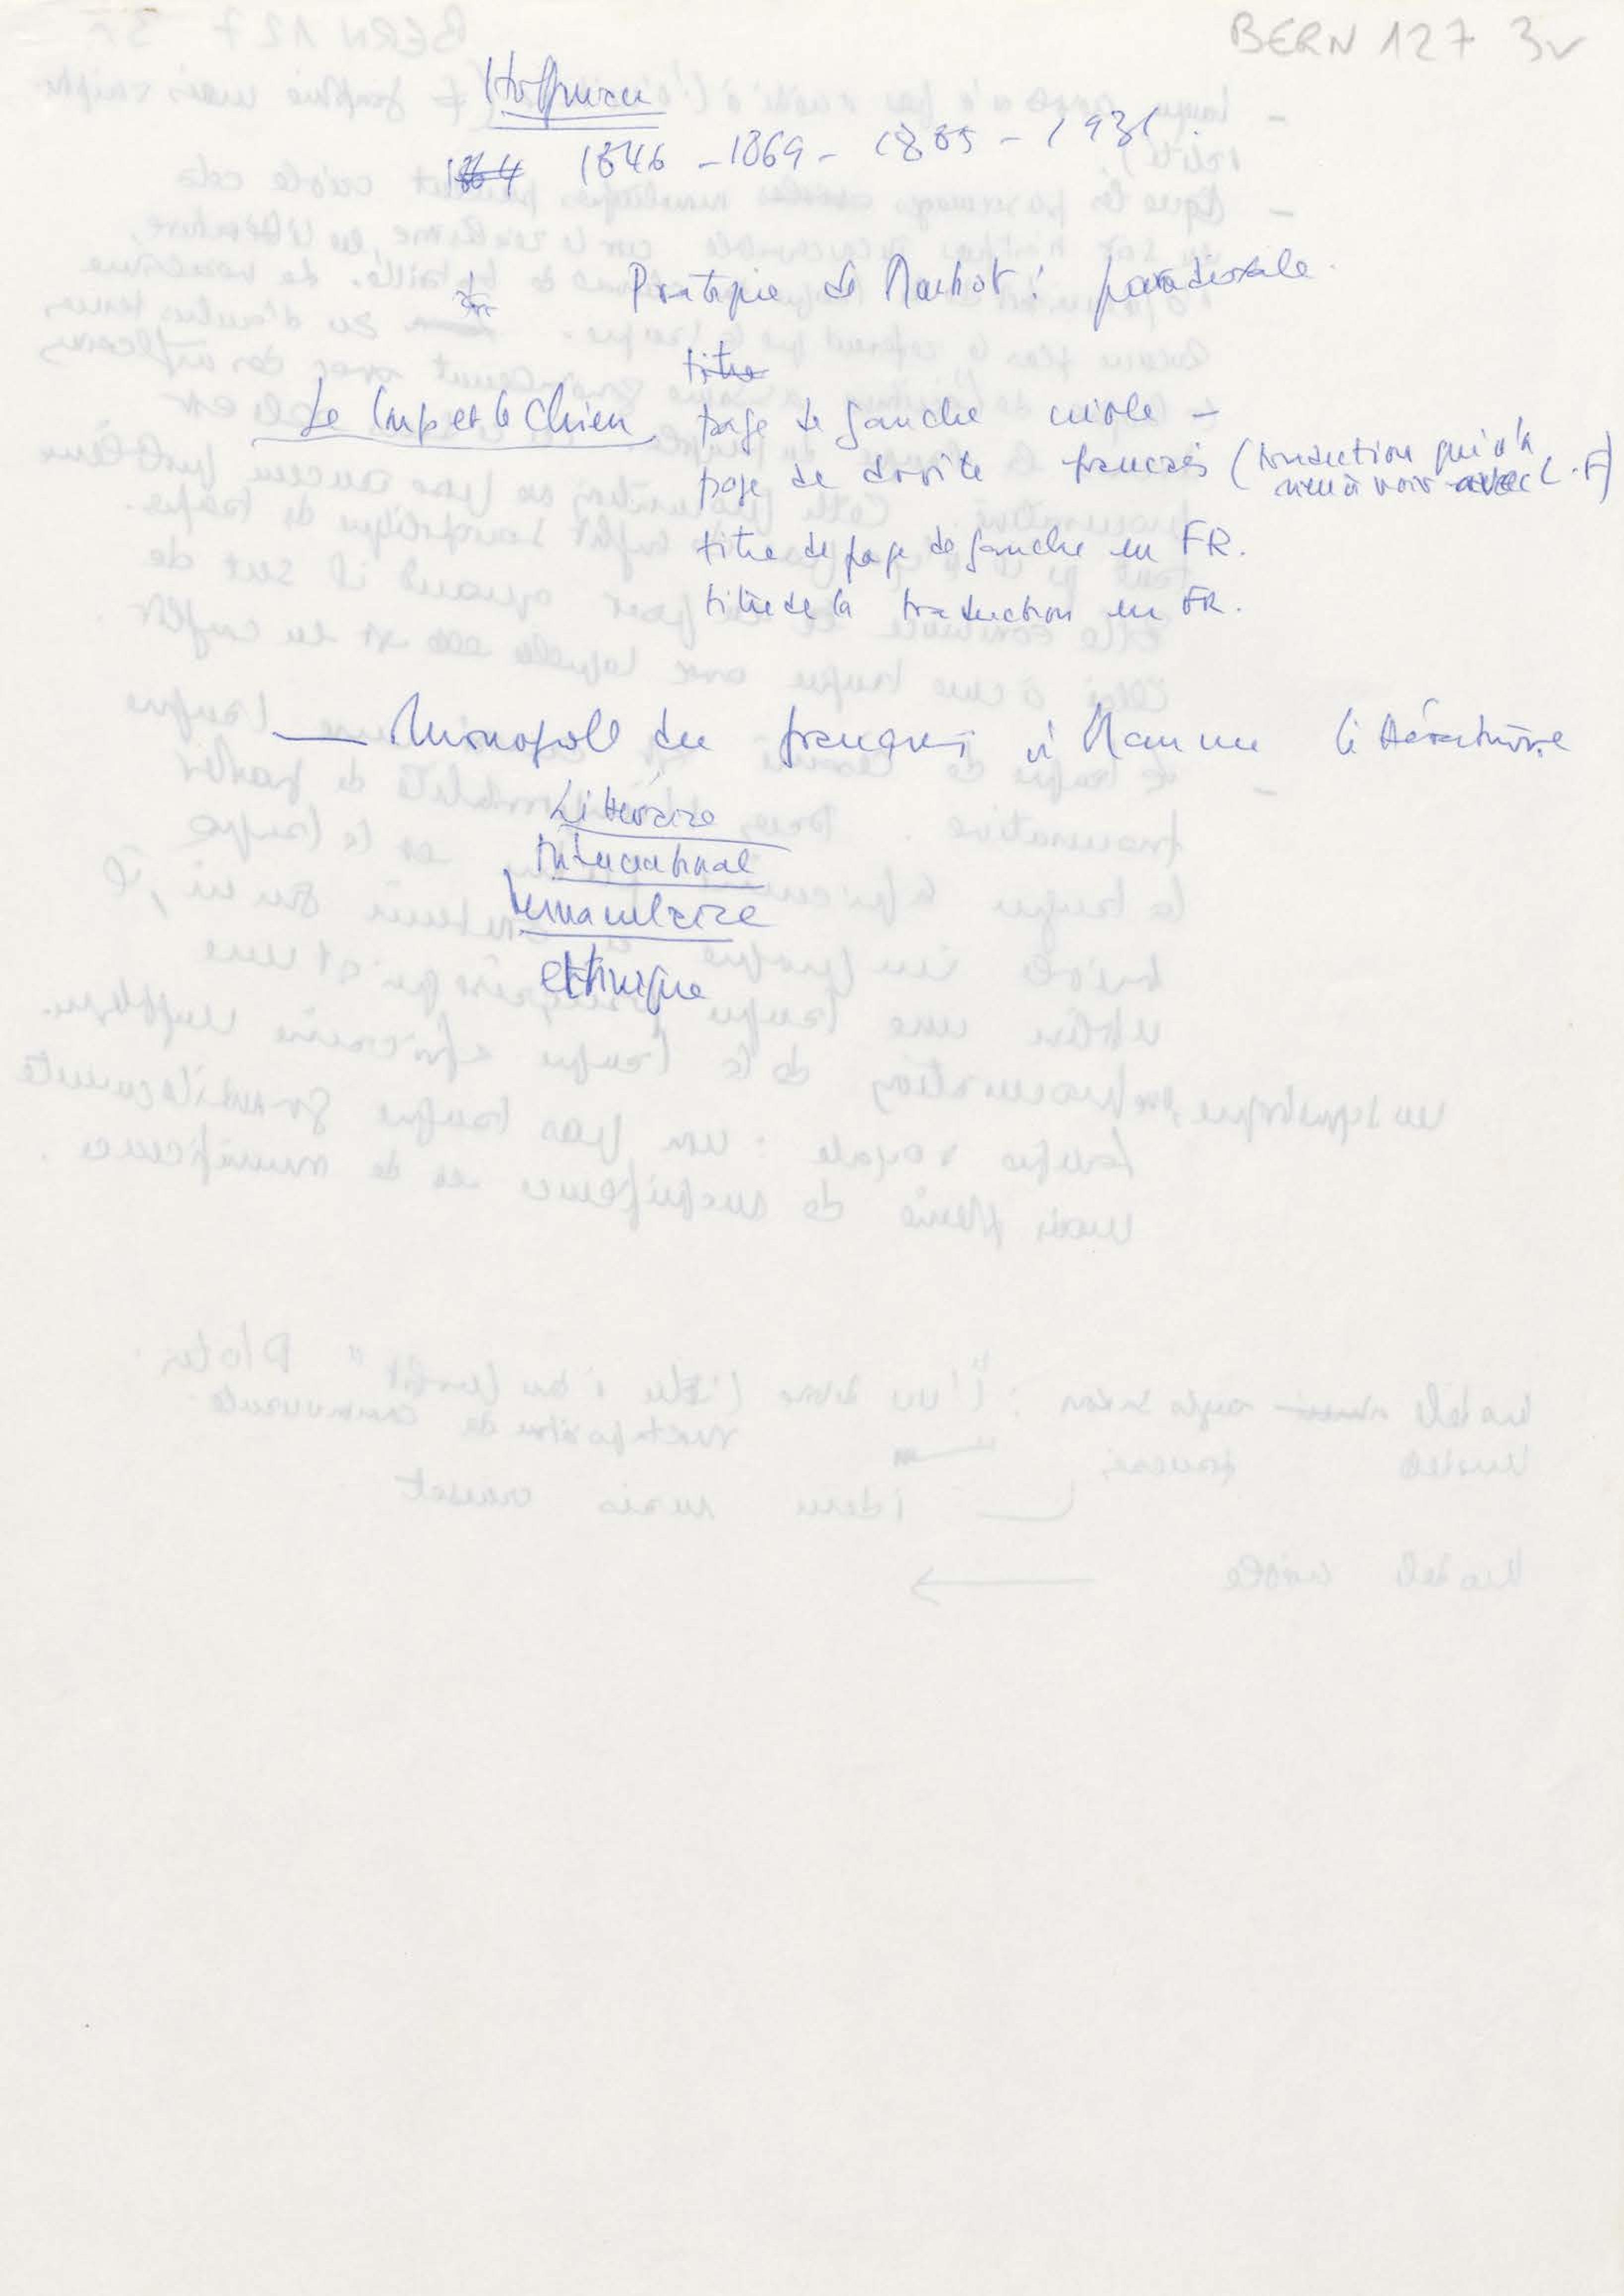 BERN 127 3v
Hoffmann
1864 1846 - 1869 - 1885 - 1931.
Pratique de Marbot : paradoxale.
titre
Le loup et le chien page de gauche créole -
page de droite français (traduction qui n'a
rien à voir avec L.F)
titre de page de gauche en FR.
titre de la traduction en FR.
— Monopole du français litérature
Littéraire
International
Vernaculaire
ethnique